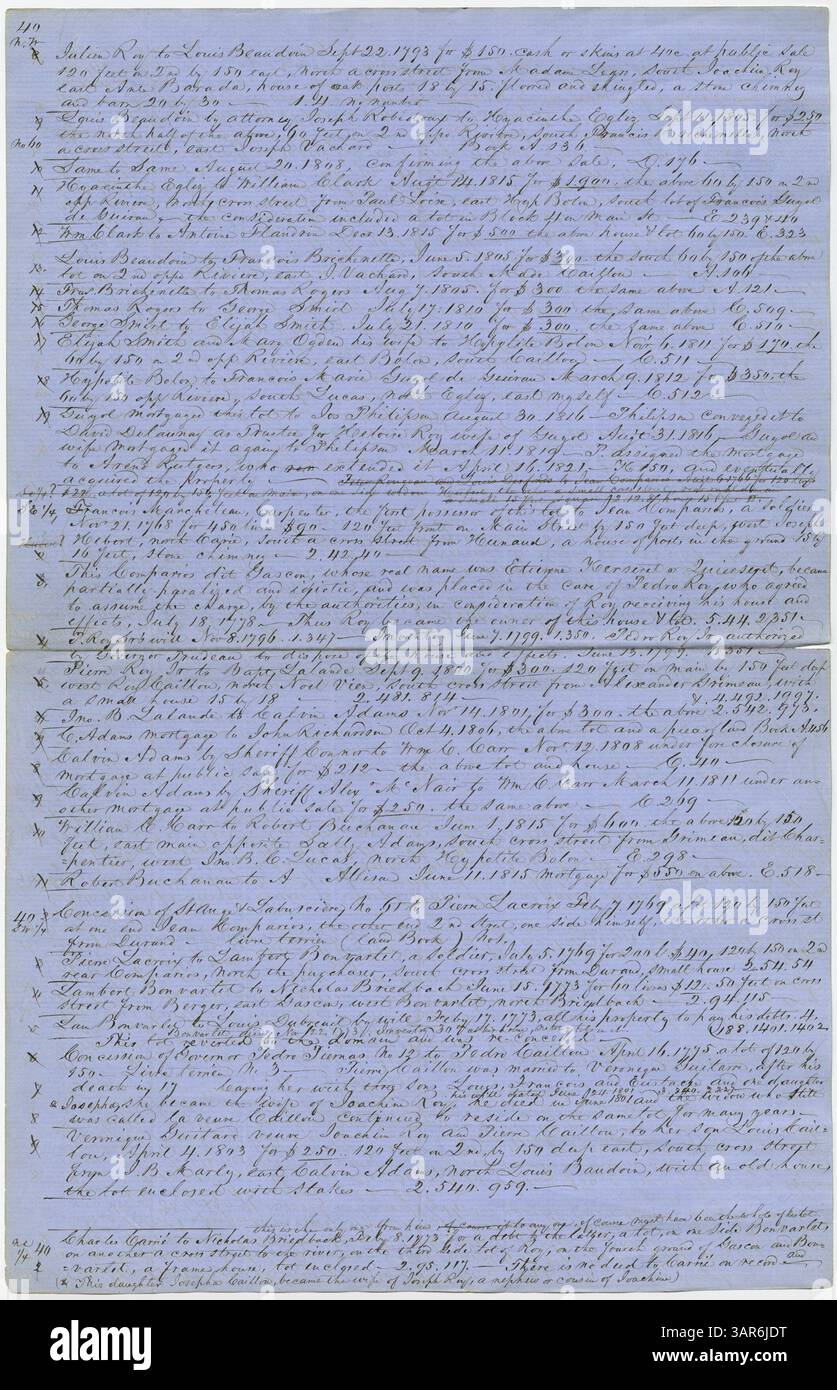 40
N.W
Julien Roy to Louis Beaudoin Sept 22. 1793 for $150. cash or skins at 40c at public sale
120 feet on 2nd by 150 east, north a cross street from Madam, south Joachin Roy
east Ante Barada, house of oak posts 18 by 15. floored and shingled, a stone chimney
and barn 20 by 30 — 1.41 no number —
9 Louis Beaudoin by attorney Joseph Robidoux to Hyacinthe Egley Sept 14. 1805. for $250
the north half of the above, 60 feet on 2nd opp Riviere, south Francis Brichenette, north
No 60 a cross street, east Joseph Vachard — Book A 136 —
10 Same to Same August 20. 1808, confirming the above sale, D. 176 —
11 Hyacinthe Egley to William Clark Augt 14. 1815 for $1900. the above 60 by 150 on 2nd
opp Riviere, north cross street from Paul, east Hyp Bolon, south lot of Francois Guyol
de Guiran, — the consideration included a lot in Block 41 on Main St — E. 239 & 40
12 Wm Clark to Antoine Flandrin Decr 13. 1815 for $500 the above house & lot 60 by 150. E. 323
13. Louis Beaudoin to Francois Brichenette, June 5. 1805 for $300. the south 60 by 150 of the above
lot on 2nd opp Riviere, east J. Vachard, south Made Caillou — A. 106
14 Frans Brichenette to Thomas Rogers Aug 7. 1805. for $300 the same above A. 121 —
15 Thomas Rogers to George Smirl July 17. 1810 for $300 the same above C. 509 —
16 George Smirl to Elijah Smith July 21. 1810 for $300. the same above C. 510 —
17 Elijah Smith and Mary Ogden his wife to Hypolite Bolon Nov 6. 1811 for $170. the
60 by 150 on 2nd opp Riviere, east Bolon, south Caillou — C. 511 —
18 Hypolite Bolon to Francois Marie Guyol de Guiran March 9. 1812 for $350. the
60 by 150 opp Riviere, south Lucas, north Egley, east myself — C. 512 —
19 Guyol mortgaged this lot to Jos Philipson August 30. 1816 — Philipson conveyed it to
David Delaunay as Trustee for Heloise Roy wife of Guyol Augt 31. 1816, — Guyol and
wife mortgage it again to Philipson March 11. 1819 — P. assigned the mortgage
to Arend Rutgers, who extended it April 16. 1821 — K. 150, and eventually
acquired the property —
Francois Marcheteau, Carpenter, the first possessor of this lot to Jean Comparios, a soldier
Nov 21. 1768 for 450 livres $90 — 120 feet front on Main Street by 150 feet deep, west Joseph
Hebert, north Carie, south a cross street from Hunaud, a house of posts in the ground 18 by
16 feet, stone chimney — 2. 42. 40 —
3. This Comparios dit Gascon, whose real name was Etienne Kerseret or Quierseret, became
partially paralyzed and idiotic, and was placed in the care of Pedro Roy, who agreed
to assume the charge, by the authorities, in consideration of Roy receiving his house and
effects, July 18. 1778 — Thus Roy became the owner of this house & lot. 5. 44. 2351 —
4 P. Roy Sr's will Nov 8. 1796. 1. 347 — Inventory June 7. 1799. 1. 350. Pedro Roy Jr authorized
by Governor Trudeau to dispose of the house and effects June 13. 1799. 1. 351 —
5. Pierre Roy Jr to Bapt Lalande Sept 9. 1800 for $300. 120 feet on main by 150 feet deep
west Roy Caillou, north Noel Vien, south cross street from Alexander Grimeau, with
a small house 15 by 18 — 2. 481. 814 — & 4. 492. 1997.
6 Jno. B. Lalande to Calvin Adams Nov 14. 1801, for $300. the above 2. 542. 973.
7 C. Adams mortgage to John Richardson Oct 4. 1806, the above lot and a piece of land Book A. 456
8 Calvin Adams by Sheriff Connor to Wm C. Carr Nov 12. 1808 under foreclosure of
mortgage at public sale for $212 — the above lot and house — C. 40 —
9 Calvin Adams by Sheriff Alex McNair to Wm C. Carr March 11. 1811 under an-
other mortgage at public sale for $250. the same above — C. 269 —
10 William C. Carr to Robert Buchanan June 1. 1815 for $600. the above 120 by 150
feet, east main opposite Sally Adams, south cross street from Grimeau, dit Char-
=pentier, west Jno. B. C. Lucas, north Hypolite Bolon — E. 298 —
11 Robert Buchanan to A Allison June 11. 1815 mortgage for $550 on above. E. 518 —
40 S.W. 1/4 Concession of St Ange & Labusciere, No. 61 to Pierre Lacroix Feb 7. 1769 of lot 120 by 150 feet
at one end Jean Comparios, the other end 2nd street, one side himself, the other a cross st
from Durand — livre terrien (land Book) No 1.
Pierre Lacroix to Lambert Bonvarlet, a soldier, July 5. 1769 for 200 l $40, 120 by 150 on 2nd
rear Comparios, north the purchaser, south cross street from Durand, small house 2. 54. 54
4 Lambert Bonvarlet to Nicholas Briedbach June 15. 1773 for 60 livres $12. 50 feet on cross
street from Berger, east Gascon, west Bonvarlet, north Briedbach — 2. 94. 115 —
5 Lam Bonvarlet to Louis Dubreuil by will Feby 17. 1773, all his property to pay his debts. 4.
This lot reverted to the domain and was re-conceded — (188. 1401. 1402.
6 Concession of Governor Pedro Piernas No 12 to Pedro Caillou April 16. 1775, a lot of 120 by
150 — Livre terrien No 3 — Pierre Caillou was married to Veronique Guitard, after his
7 death in 17 leaving her with three sons, Louis, Francois and Eustach and one daughter
* Josepha, she became the wife of Joachin Roy, he died in June 1801 and the widow who still
8 was called la veuve Caillou continued to reside on the same lot for many years —
Veronique Guitard veuve Joachin Roy and Pierre Caillou, to her son Louis Cail-
lou, April 4. 1803 for $250. 120 feet on 2nd, by 150 deep east, south cross street
from J. B. Marly, east Calvin Adams, north Louis Baudoin, with an old house,
the lot enclosed with stakes — 2. 540. 959. —
N.E 1/4 40 Charles Carrié to Nicholas Briedback, Feby 8. 1773 for a debt of the latter, a lot, on one side Bonvarlet,
on another a cross street to the river, on the third side lot of Roy, on the fourth ground of Gascon and Bon-
2 =varlet, a frame house, lot inclosed — 2. 95. 117. — There is no deed to Carrié on record — and
(* This daughter Josepha Caillou, became the wife of Joseph Roy, a nephew or cousin of Joachim)
alamy
Image ID: 3AR6JDT
www.alamy.com